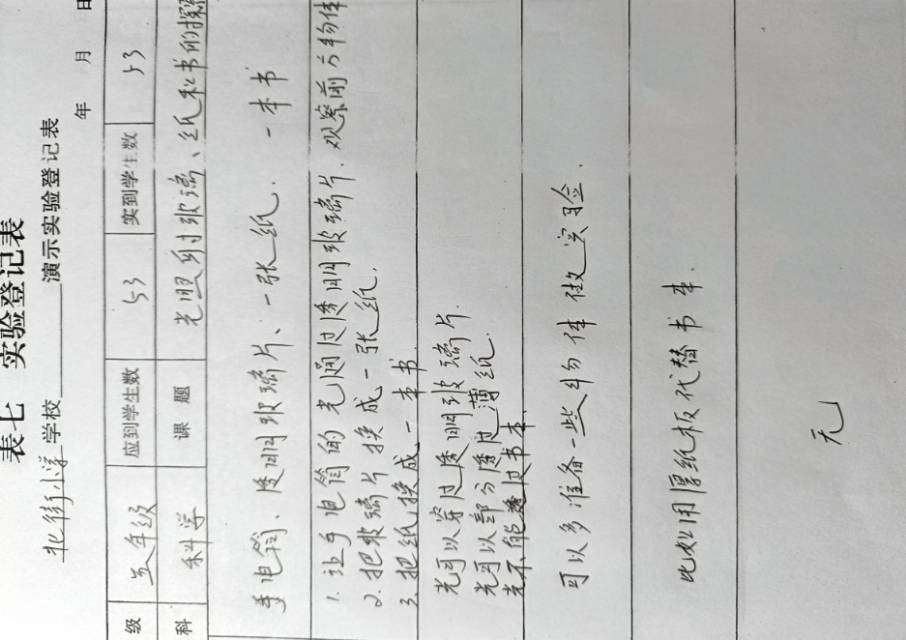 表七 实验登记表
北街小学 学校 演示实验登记表
年 月 日
级 五年级 应到学生数 53 实到学生数 53
科 科学 课题 光照射玻璃、纸和书的探
手电筒、透明玻璃片、一张纸、一本书
1. 让手电筒的光通过透明玻璃片,观察前方物体
2. 把玻璃片换成一张纸.
3. 把纸换成一本书
光可以穿过透明玻璃片.
光可以部分透过薄纸.
光不能透过书本
可以多准备一些物体做实验.
比如用厚纸板代替书本.
无